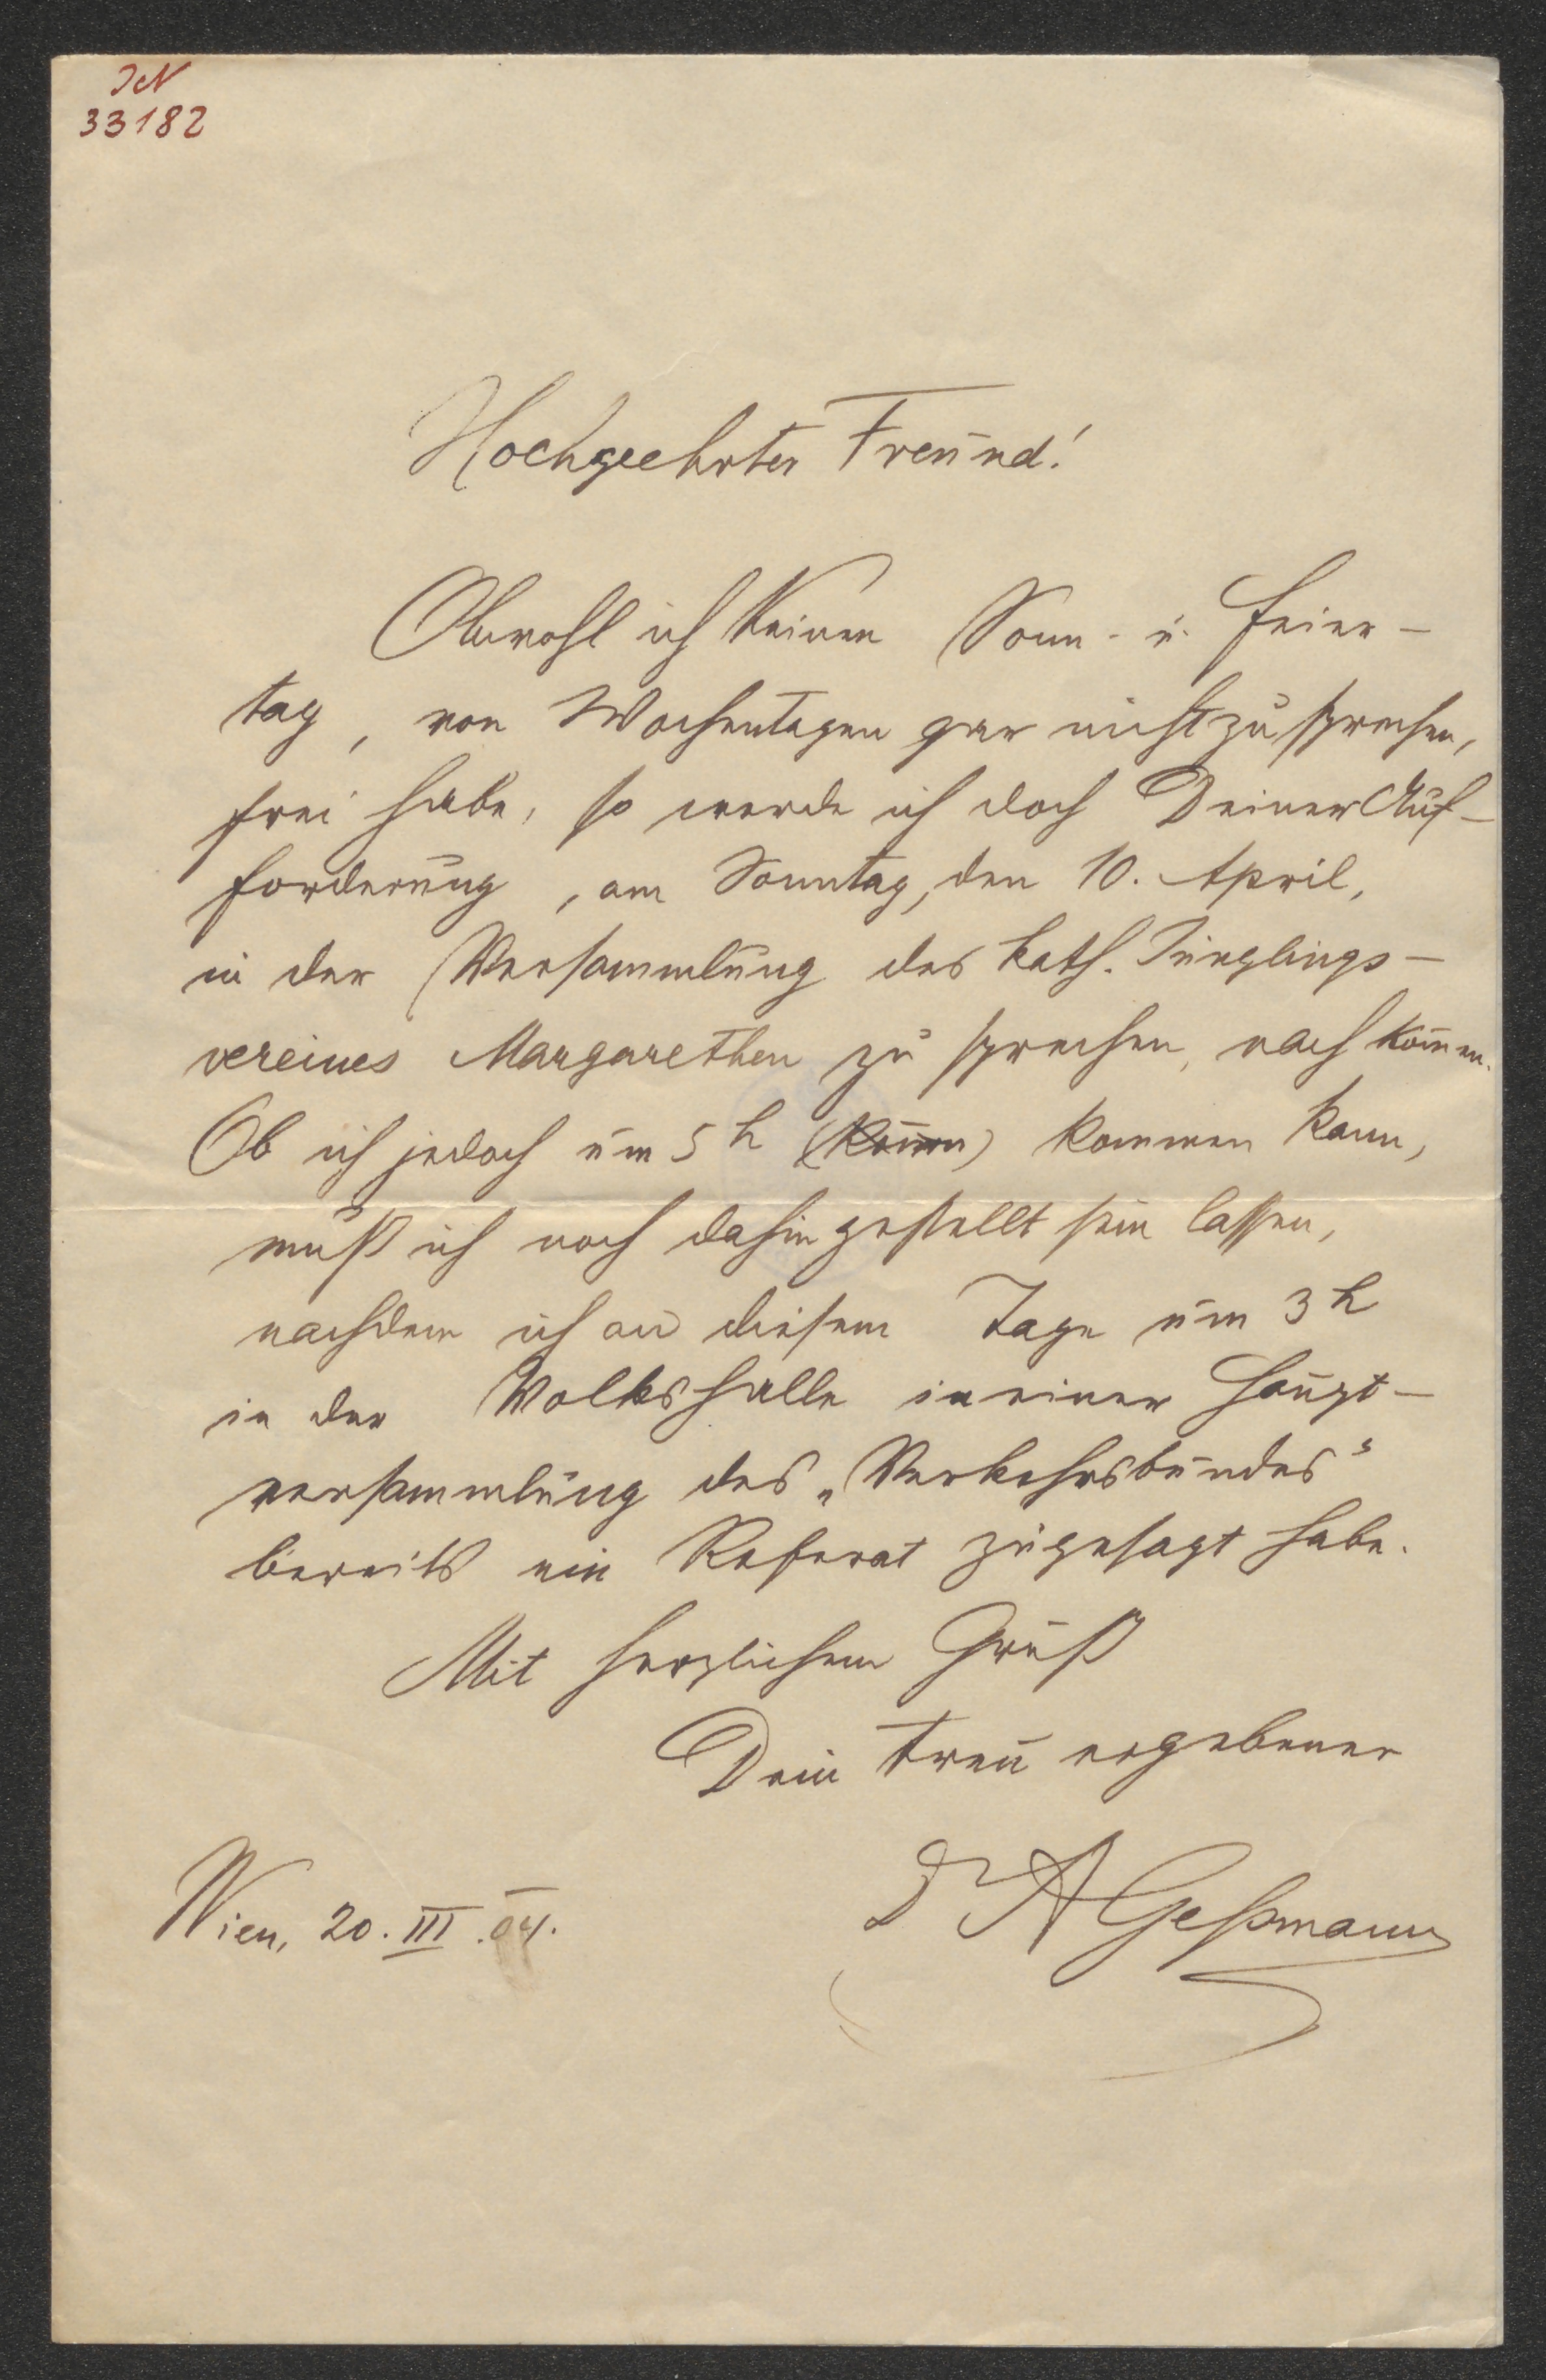 IN
33182
Hochgeehrter Freund!
Obwohl ich keinen Sonn- u. Feier-
tag, von Wochentagen gar nicht zu sprechen,
frei habe, so werde ich doch Deiner Auf-
forderung, am Sonntag, den 10. April,
in der Versammlung des kath. Jünglings-
vereines Margarethen zu sprechen, nachkom̅en.
Ob ich jedoch um 5 h (kom̅en) kommen kann,
muß ich noch dahingestellt sein lassen,
nachdem ich an diesem Tage um 3 h
in der Volkshalle in einer Haupt-
versammlung des „Verkehrsbundes“
bereits ein Referat zugesagt habe.
Mit herzlichem Gruß
Dein treu ergebener
Dr AGeßmann
Wien, 20. III. 04.